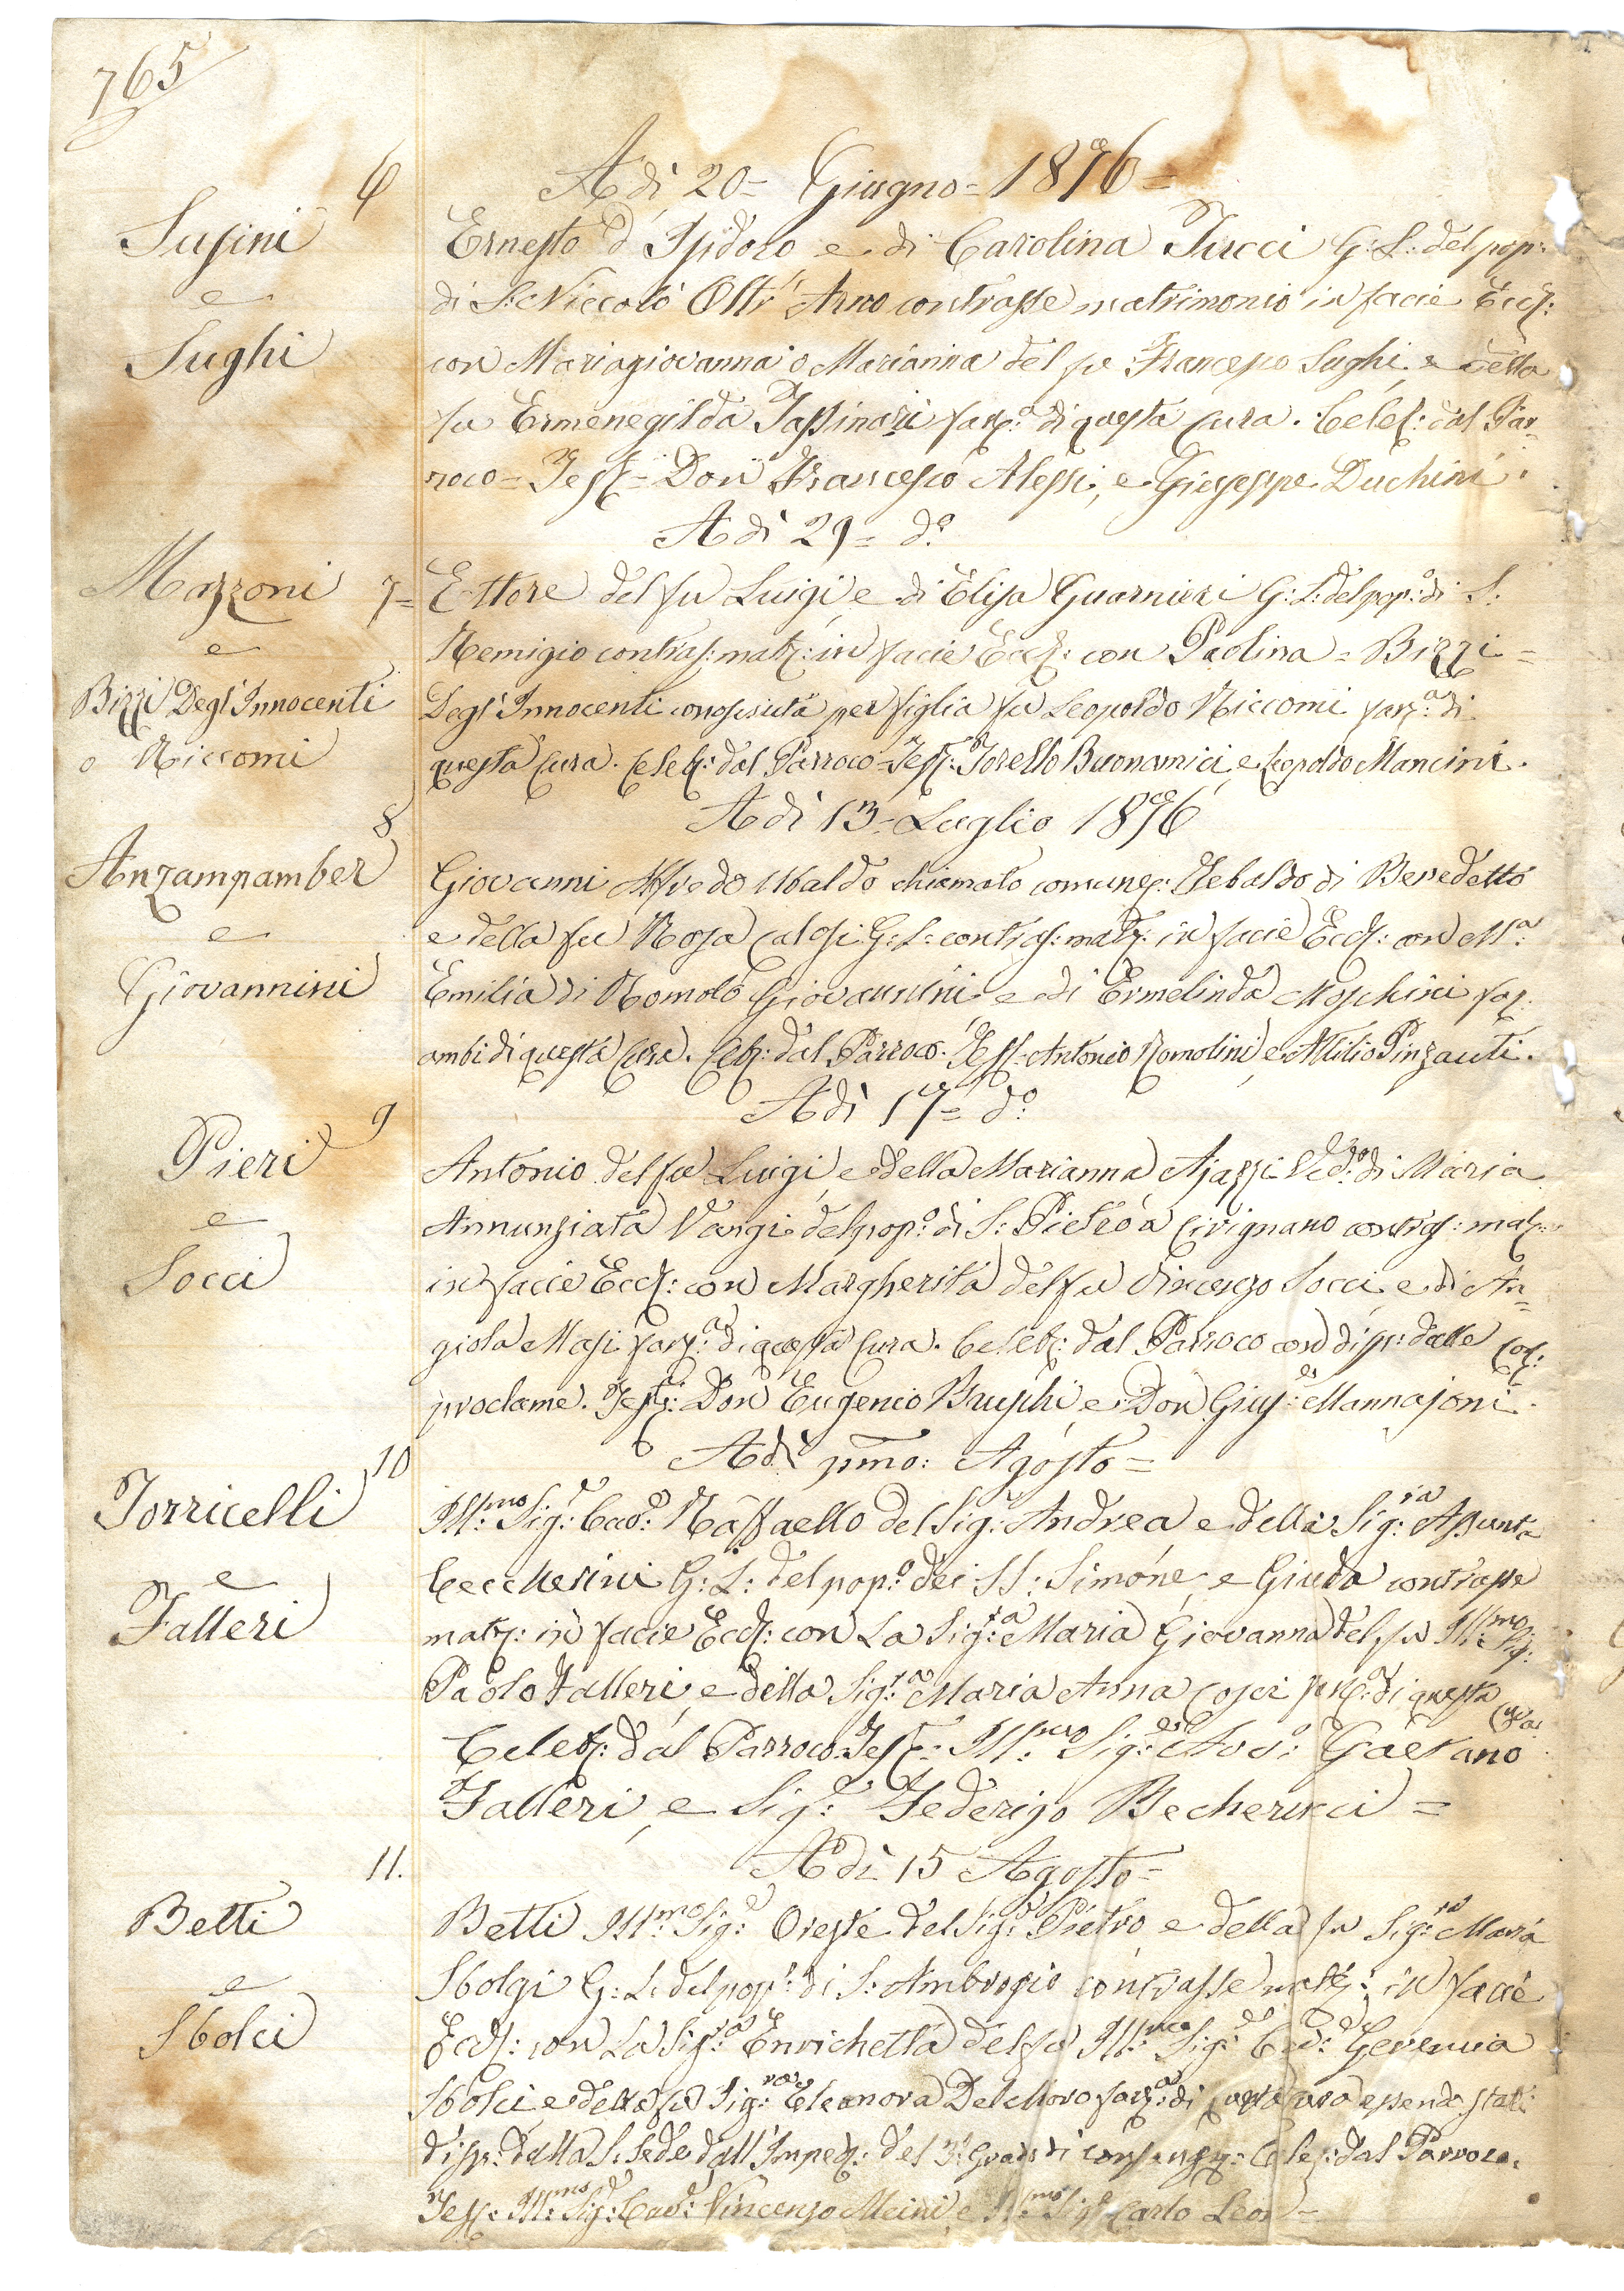 765
6
A dì 20= Giugno= 1876=
Susini
e
Sughi
Ernesto d'Isidoro e di Carolina Tucci G: L: del pop:
di S: Niccolò Oltr'Arno contrasse matrimonio in facie Eccl:
con Mariagiovanna o Marianna del fu Francesco Sughi e della
fu Ermenegilda Tassinari fanc:ª di questa Cura. Celeb: dal Par=
roco= Test= Don Francesco Alessi, e Giuseppe Duchini.
A dì 29= dº
Mazzoni 7=
e
Bizzi Degl'Innocenti
o Niccomi
Ettore del fu Luigi e di Elisa Guarnieri G: L: del pop:º di S:
Remigio contras: matr: in facie Eccl: con Paolina= Bizzi=
Degl'Innocenti conosciuta per figlia fu Leopoldo Niccomi fanc:ª di
questa Cura. Celeb: dal Parroco= Test: Torello Buonamici, e Leopoldo Mancini.
A dì 13= Luglio 1876
8
Anzampamber
e
Giovannini
Giovanni Alfredo Ubaldo chiamato comunem: Tebaldo di Benedetto
e della fu Rosa Calosi G: L: contras: matr: in facie Eccl: con Mª:
Emilia di Romolo Giovannini e di Ermelinda Moschini fan:
ambi di questa Cura. Celeb: dal Parroco. Test: Antonio Romolini e Attilio Pinzauti.
A dì 17= dº
9
Pieri
e
Socci
Antonio del fu Luigi, e della Marianna Ajazzi Vedº: di Maria
Annunziata Vangi del pop:º di S: Pietro a Civignano contras: matr:
in facie Eccl: con Margherita del fu Vincenzo Socci e di An=
giola Masi fanc:ª di questa Cura. Celeb: dal Parroco con disp: dalle Con:
proclame. Test: Don Eugenio Bruschi e Don Gius:ᵉ Mannajoni.
A dì pmo: Agosto=
10
Torricelli
e
Falleri
Ill:ᵐᵒ Sig:ʳ Cav:ᵉ Raffaello del Sig:ʳ Andrea e della Sig:ʳᵃ Assunta
Ceccherini G: L: del pop:º dei SS: Simone, e Giuda contrasse
matr: in facie Eccl: con La Sig:ʳᵃ Maria Giovanna del fu Ill:ᵐᵒ Sig:
Paolo Falleri, e della Sig:ʳᵃ Maria Anna Cosci fanc:ª di questa Cura
Celeb: dal Parroco Test: Ill:ᵐᵒ Sig:ʳᵉ Avv: Gaetano
Falleri, e Sig:ʳ Federigo Becherucci=
11.
A dì 15 Agosto=
Betti
e
Sbolci
Betti Ill:ᵐᵒ Sig:ʳ Oreste del Sig:ʳ Pietro e della fu Sig:ʳᵃ Maria
Sbolgi G: L: del pop:º di S: Ambrogio contrasse matr: in facie
Eccl: con La Sig:ʳᵃ Enrichetta del fu Ill:ᵐᵒ Sig:ʳ Cav: Geremia
Sbolci e della fu Sig:ʳᵃ Eleonora Del Moro fanc:ª di questa Cura essendo stati
disp: dalla S. Sede dall'Imped: del 3º Grado di consang: Celeb: dal Parroco.
Test: Ill:ᵐᵒ Sig:ʳ Cav:ᵉ Vincenzo Meini, e Ill:ᵐᵒ Sig:ʳ Carlo Leoni=